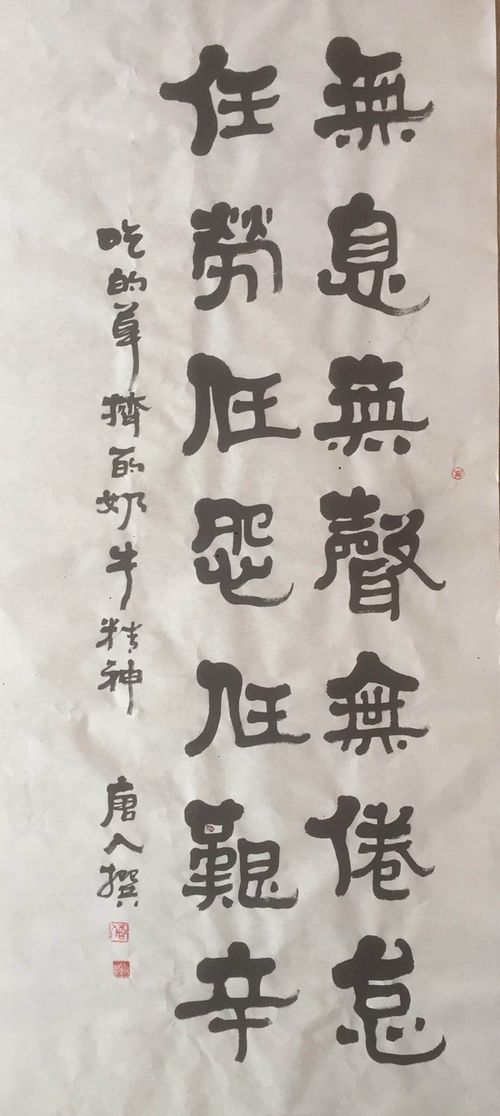 無息無聲無倦怠
任勞任怨任艱辛
吃的草擠的奶牛精神
唐人撰